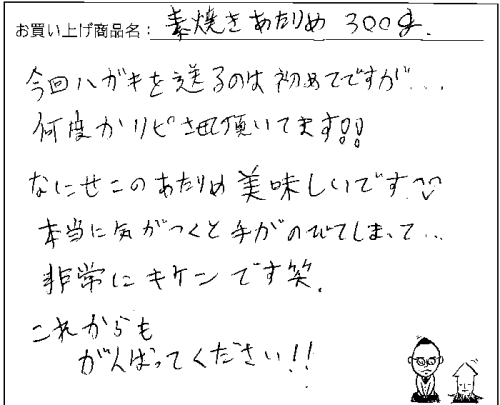 お買い上げ商品名： 素焼きあたりめ 300g.
今回ハガキを送るのは初めてですが...
何度かリピさせて頂いてます!!
なにせこのあたりめ美味しいです
本当に気がつくと手がのびてしまって...
非常にキケンです笑.
これからも
がんばってください!!